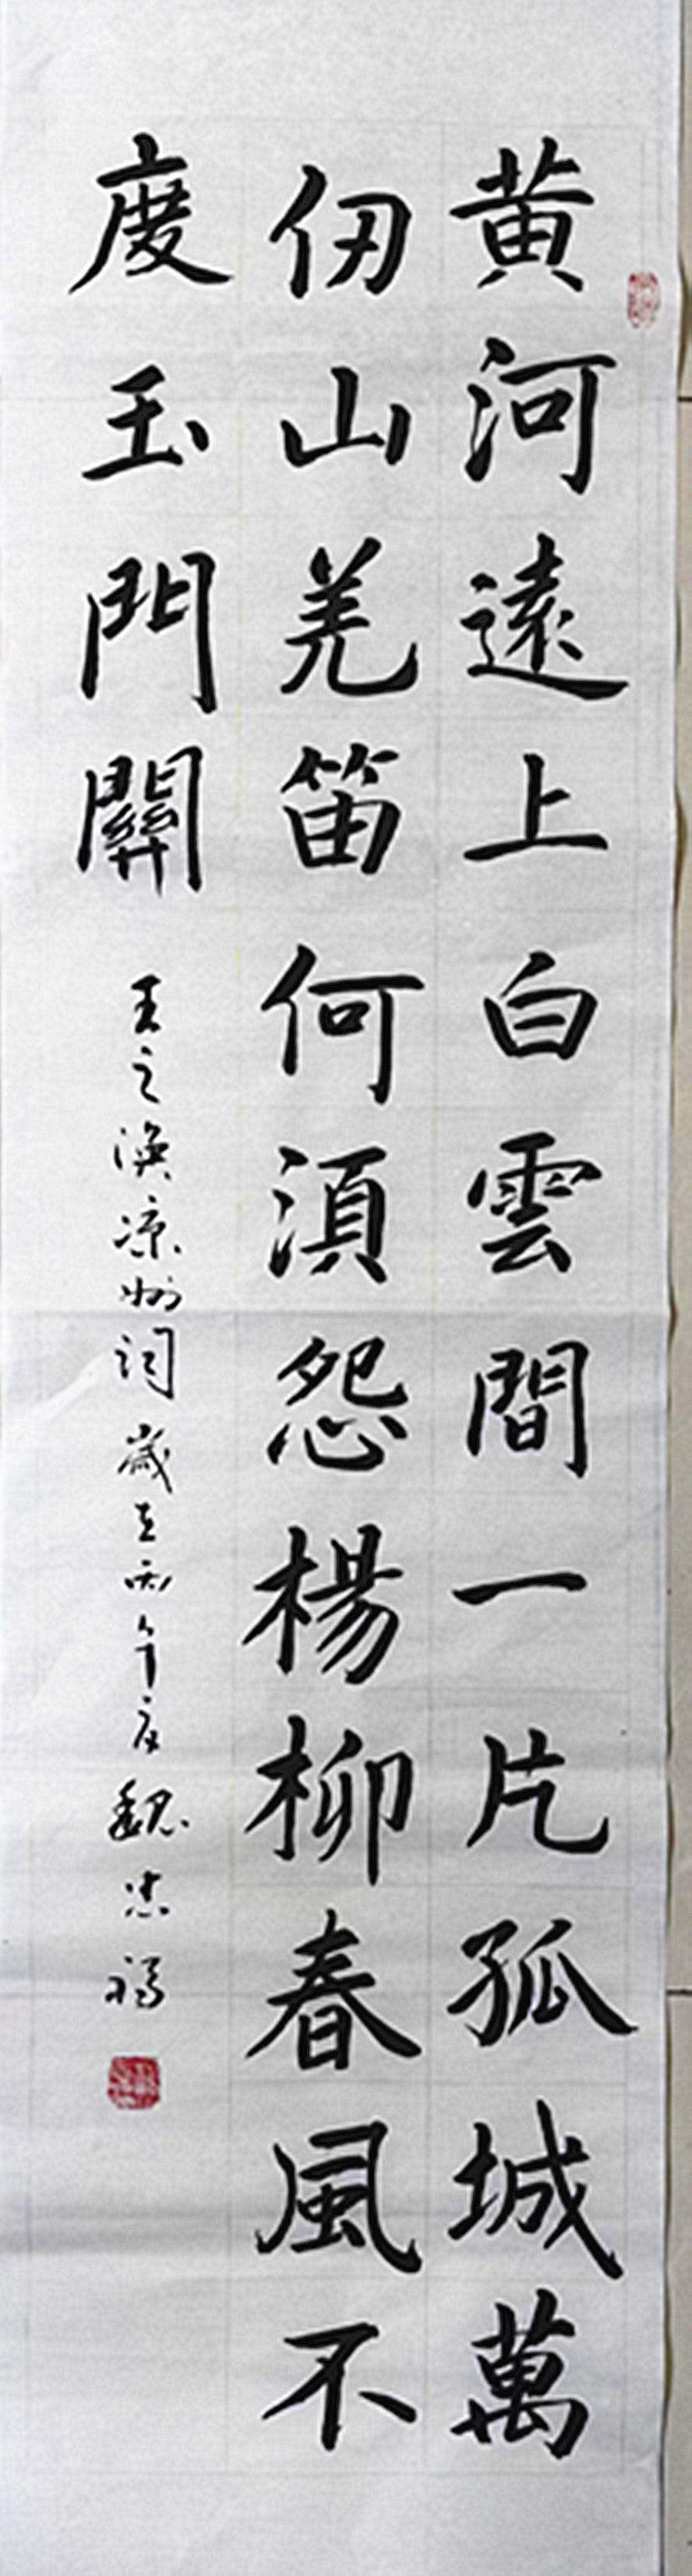 黄河遠上白雲間一片孤城萬
仞山羌笛何須怨楊柳春風不
度玉門關
王之渙凉州詞歲在丙午夏魏忠